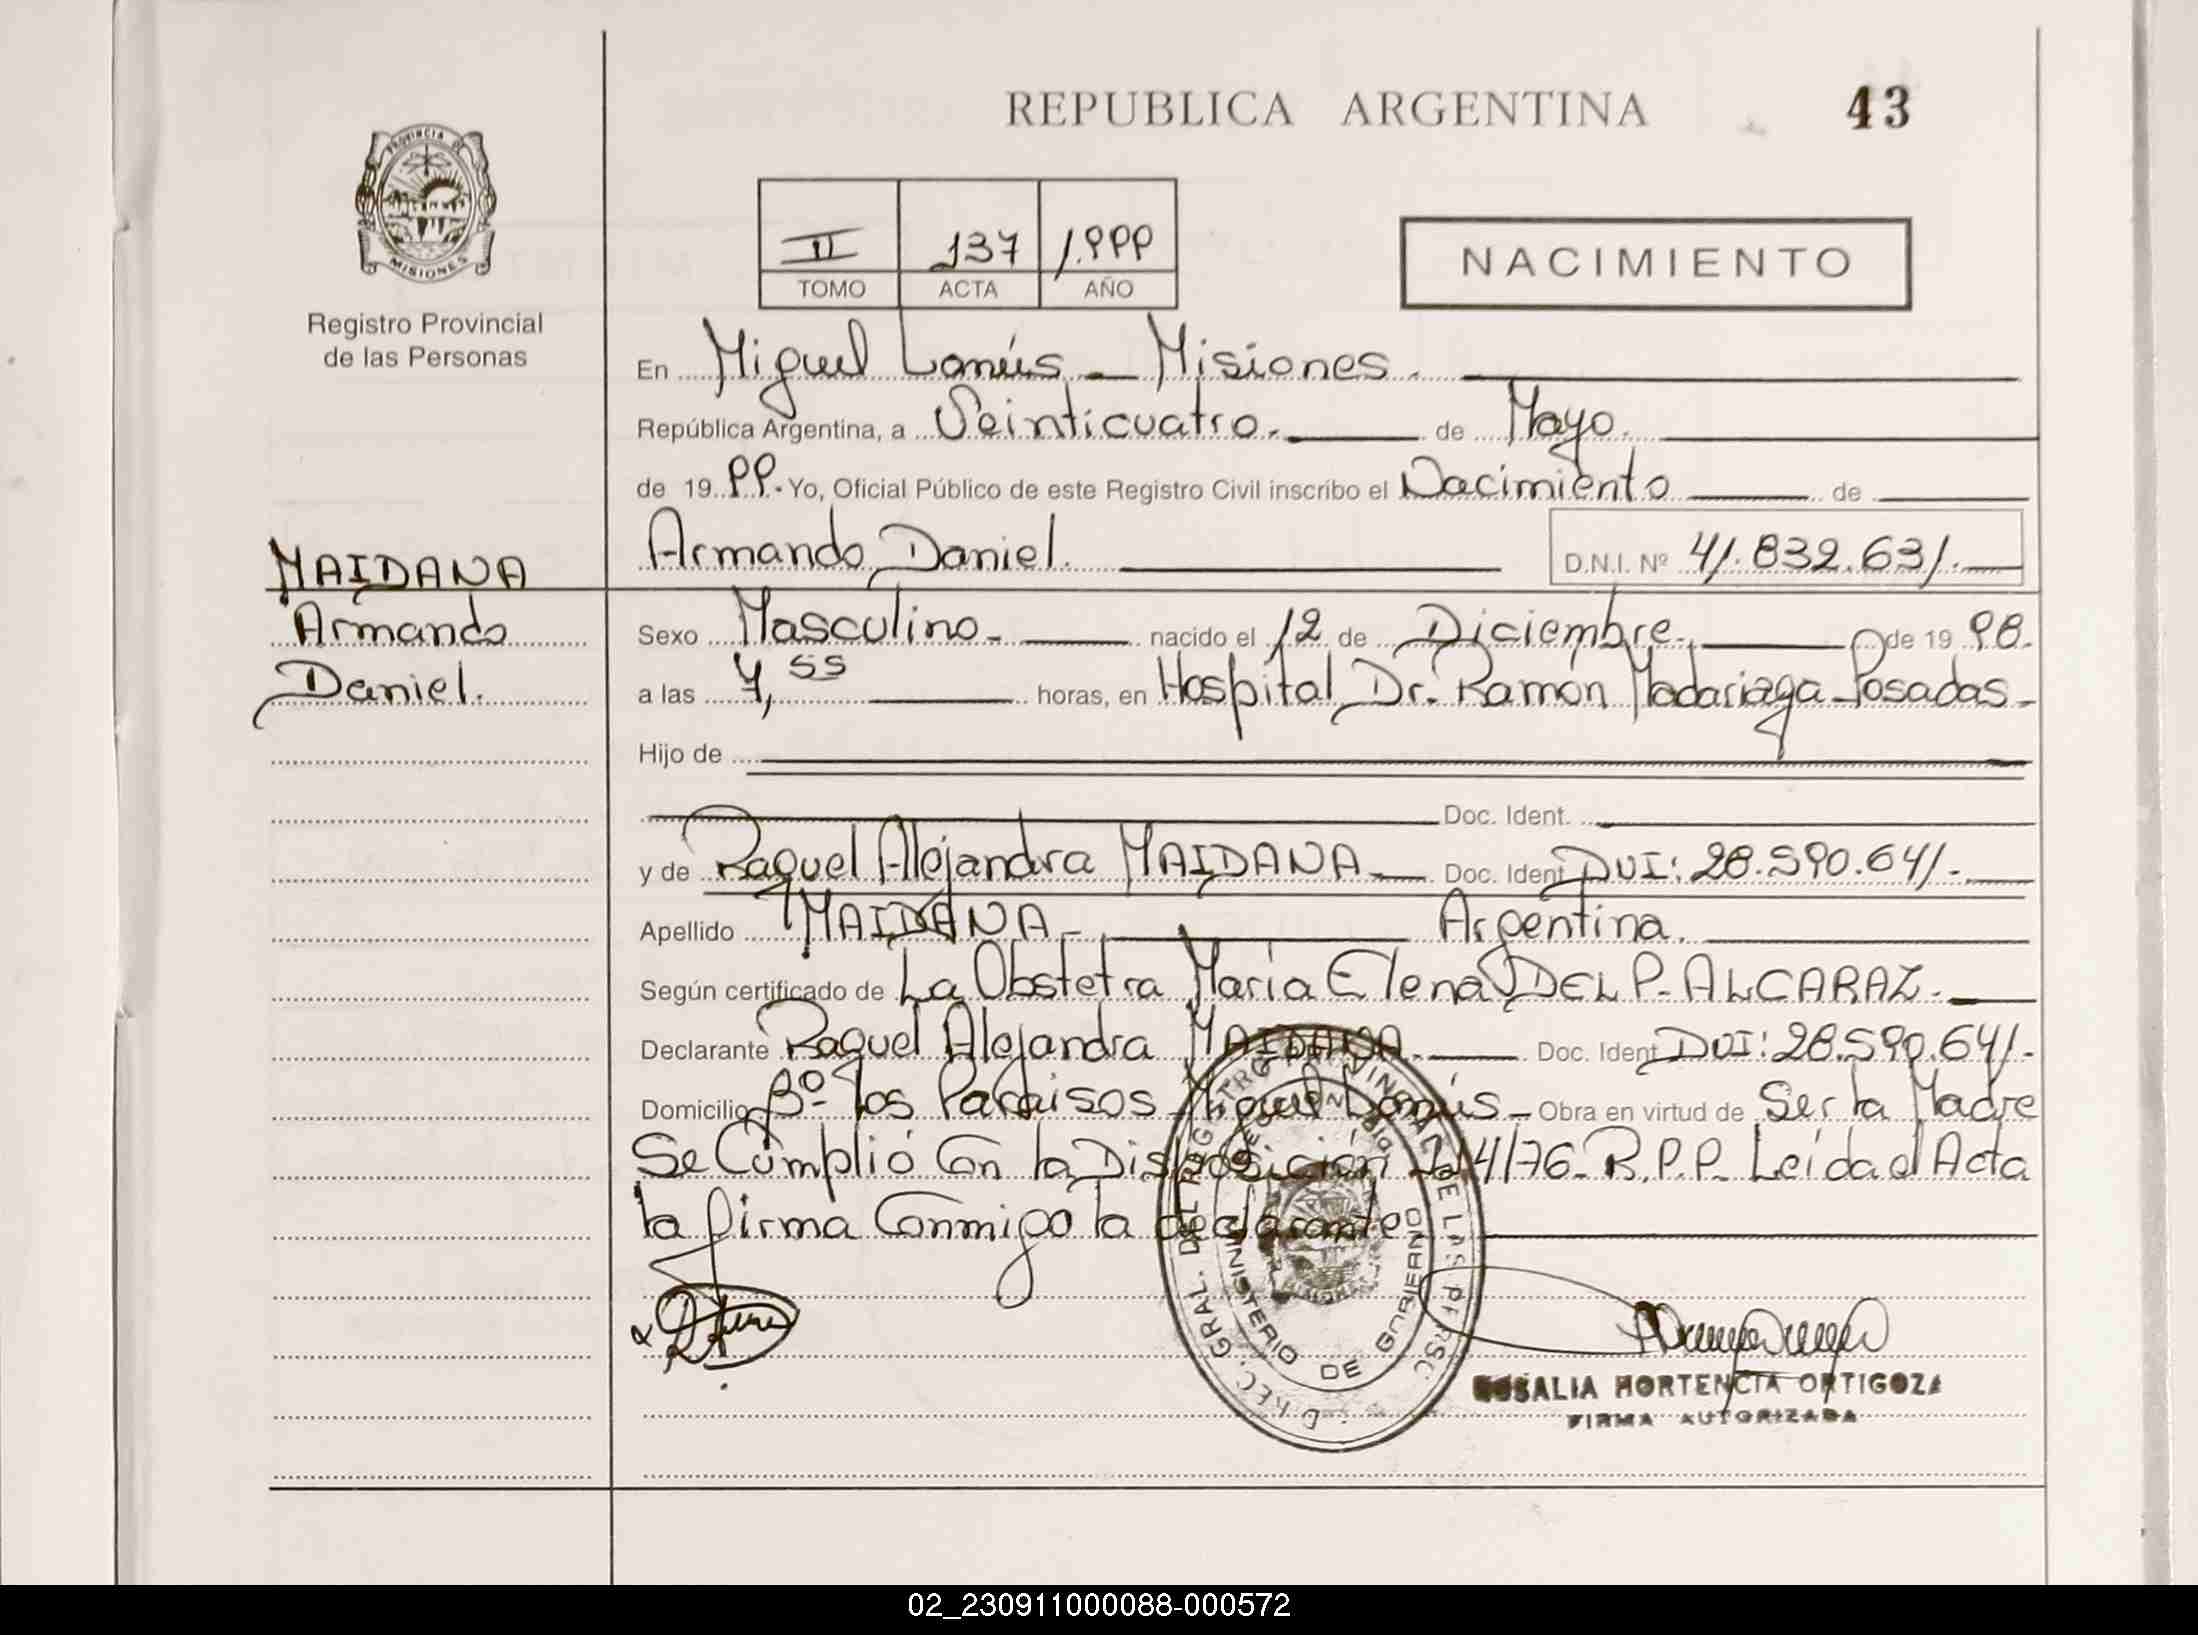 REPUBLICA ARGENTINA
43
PROVINCIA DE
MISIONES
Registro Provincial
de las Personas
II 137 1.999
TOMO ACTA AÑO
NACIMIENTO
En Miguel Lanús - Misiones.
República Argentina, a Veinticuatro. de Mayo.
de 19 99. Yo, Oficial Público de este Registro Civil inscribo el Nacimiento de
Armando Daniel. D.N.I. Nº 41.832.631.
MAIDANA
Armando
Daniel.
Sexo Masculino- nacido el 12 de Diciembre. de 19 98.
a las 7,55 horas, en Hospital Dr. Ramón Madariaga-Posadas-
Hijo de
Doc. Ident.
y de Raquel Alejandra MAIDANA- Doc. Ident DNI: 28.590.641.
Apellido MAIDANA- Argentina.
Según certificado de La Obstetra María Elena DEL P. ALCARAZ.
Declarante Raquel Alejandra MAIDANA. Doc. Ident DNI: 28.590.641.
Domicilio Bº Los Paraisos Miguel Lanús- Obra en virtud de Ser la Madre
Se Cumplió Con la Disposición 4/76- R.P.P. Leída el Acta
la firma Conmigo la declarante
DIREC. GRAL. DEL REGISTRO PROVINCIAL DE LAS PERSONAS
MINISTERIO DE GOBIERNO
ROSALIA HORTENCIA ORTIGOZA
FIRMA AUTORIZADA
02_230911000088-000572